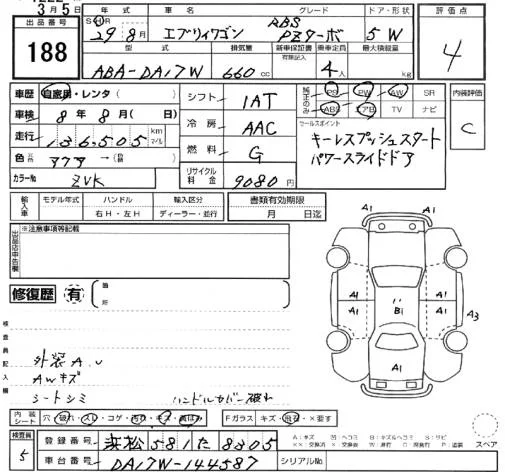 3月5日
出品番号 188
年式 車名 グレード ドア・形状
S H R 29年8月 エブリィワゴン RBS PZターボ 5W
型式 排気量 新車保証書 有無記入 乗車定員 最大積載量
ABA-DA17W 660cc 4人 kg
評価点 4
車歴 自家用・レンタ( )
車検 8年8月( 日)
走行 136,505 km マイル
色
カラーNo ZVK
シフト IAT
冷房 AAC
燃料 G
リサイクル料金 9080円
純正のみ PS PW AW SR
ABS エアB TV ナビ
セールスポイント
キーレスプッシュスタート
パワースライドドア
内装評価 C
輸入車 モデル年式 ハンドル 輸入区分
右H・左H ディーラー・並行
書類有効期限
月 日迄
出品店申告欄 ※注意事項等記載
修復歴 有 箇所
検査員記入欄
外装A.U
AWキズ
シートシミ ハンドルカバー破れ
A1 A1
A1 A1
B1
A1 A1 A3
A1
内装シート 穴・破れ・スレ・コゲ・汚れ・キズ・
Fガラス キズ・飛石・×要す
A:キズ
スペア
検査員 5
登録番号 浜松 581 た 8305
車台番号 DA17W-144587 シリアルNo